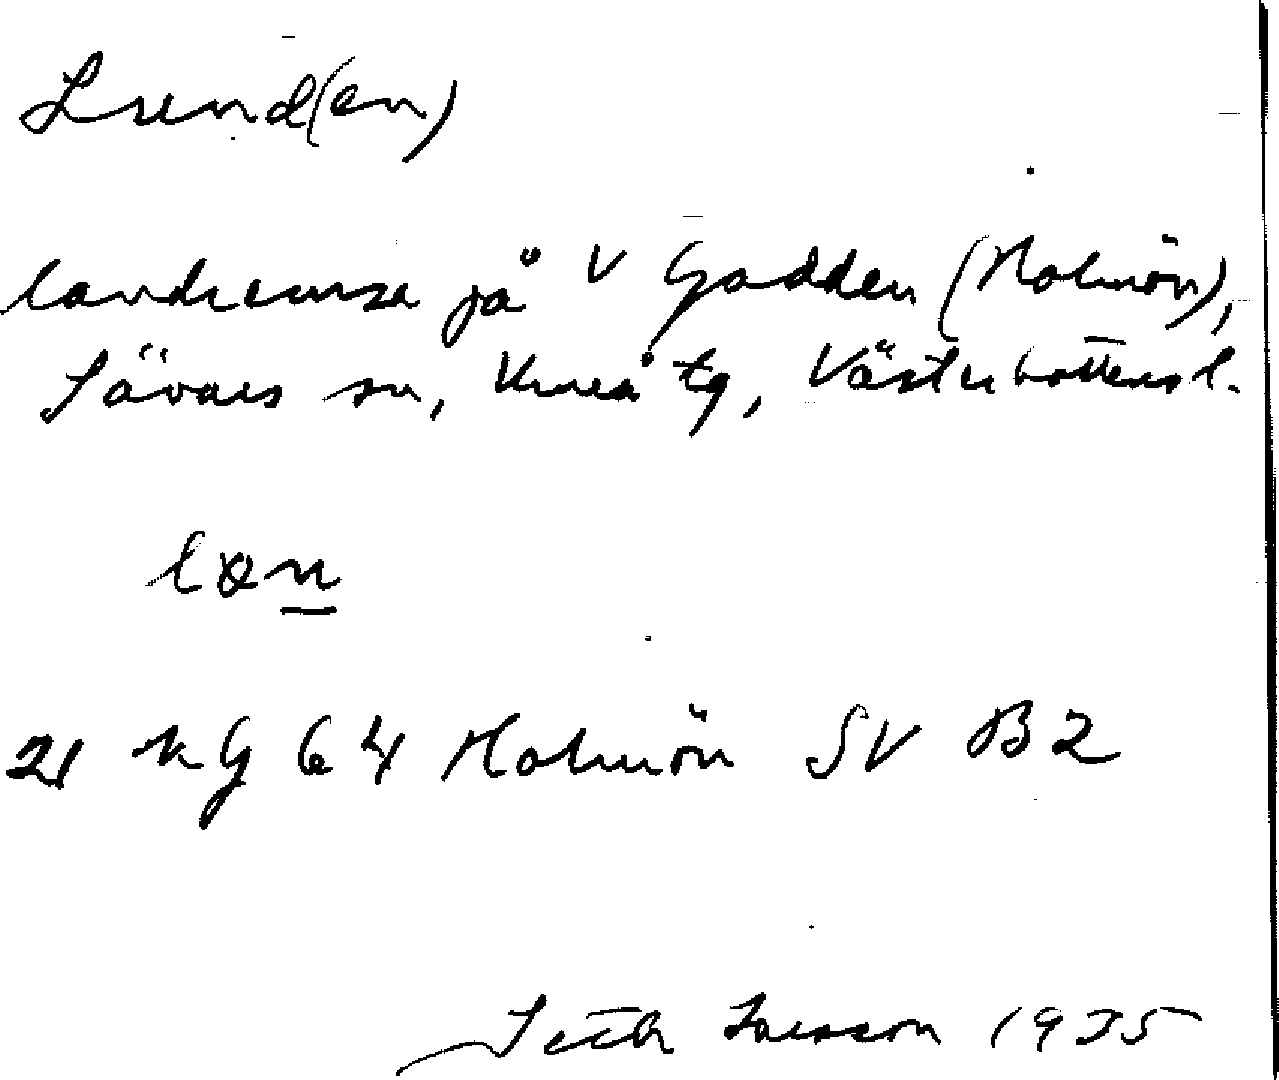 Lund(en)
landremsa på V Gadden (Holmön),
Sävars sn, Umeå tg, Västerbottens l.
løn
21 KG 64 Holmön SV B2
Seth Larsson 1935